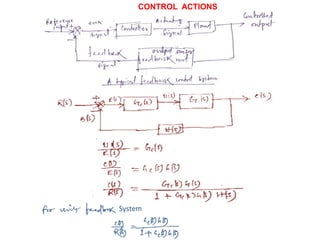 CONTROL ACTIONS
Reference input
error signal
Controller
Actuating signal
Plant
Controlled output
feedback signal
output
feedback
A typical feedback control system
R(s)
E(s)
Gc(s)
U(s)
G(s)
C(s)
B(s)
H(s)
U(s)/E(s) = Gc(s)
C(s)/E(s) = Gc(s) G(s)
C(s)/R(s) = Gc(s) G(s) / 1 + Gc(s) G(s) H(s)
For unity feedback System
C(s)/R(s) = Gc(s) G(s) / 1 + Gc(s) G(s)